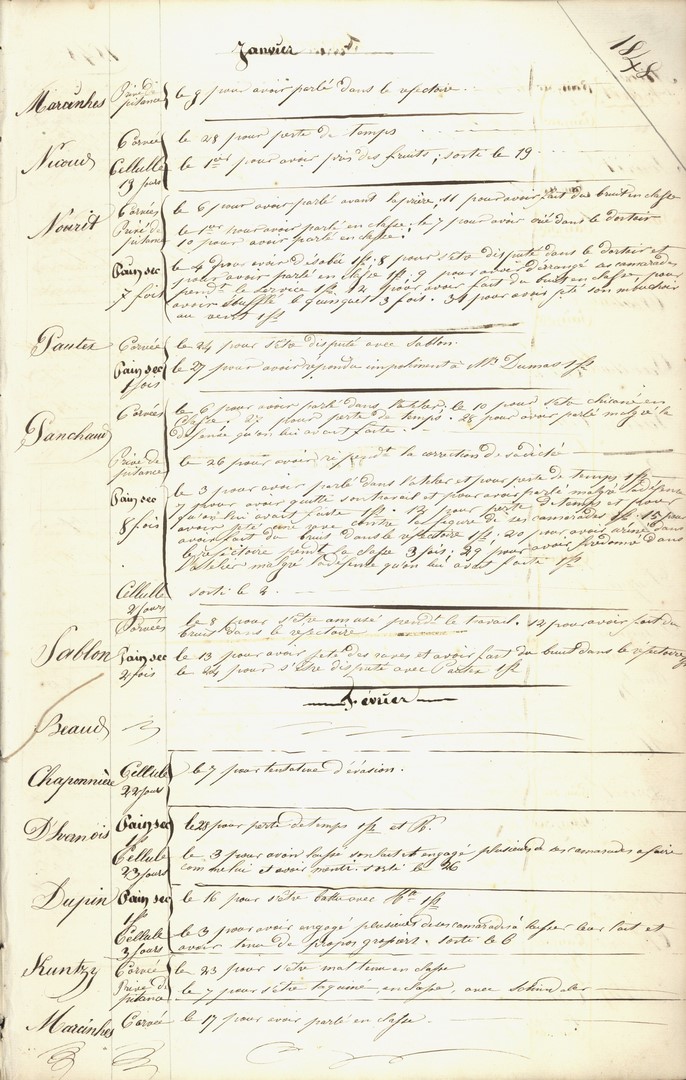 Janvier
1848
Marcinhes Privé de pitance le 9 pour avoir parlé dans le refectoire.
Nicoud Corvée le 28 pour perte de temps
Cellulle 19 jours le 1er pour avoir pris des fruits, sorti le 19
Nourit Corvées le 6 pour avoir parlé avant la prière, 11 pour avoir fait du bruit en classe
Privé de pitance le 1er pour avoir parlé en classe; le 7 pour avoir crié dans le dortoir
10 pour avoir parlé en classe.
Pain sec 7 fois le 4 pour avoir désobéi 1 fs. 8 pour s'être disputé dans le dortoir et
pour avoir parlé en classe 1 fs. 9 pour avoir dérangé ses camarades
pendt le service 1 fs. 12 pour avoir fait du bruit en classe, pour
avoir soufflé le quinquet 3 fois. 31 pour avoir jeté son mouchoir
au vent 1 fs
Pautex Corvée le 24 pour s'être disputé avec Sablon.
Pain sec 1 fois le 27 pour avoir répondu impoliment à Mr Dumas 1 fs.
Panchaud Corvées le 6 pour avoir parlé dans l'atelier. le 10 pour s'être chicané en
classe. 27 pour perte de temps. 28 pour avoir parlé malgré la
défense qu'on lui avait faite.
Privé de pitance le 26 pour avoir la correction de
Pain sec 8 fois le 3 pour avoir parlé dans l'atelier et pour perte de temps 1 fs.
7 pour avoir quitté son travail et pour avoir parlé malgré la défense
qu'on lui avait faite 1 fs. 13 pour perte de temps et pour
avoir jeté une rave contre la figure de ses camarades 1 fs. 15 pour
avoir fait du bruit dans le refectoire 1 fs; 20 pour avoir dans
le refectoire pendt la classe 3 fois; 29 pour avoir fredonné dans
l'atelier malgré la défense qu'on lui avait faite 1 fs
Cellulle 2 jours sorti le 2.
Sablon Corvées le 8 pour s'être amusé pendt le travail. 12 pour avoir fait du
bruit dans le refectoire
Pain sec 2 fois le 13 pour avoir jeté des raves et avoir fait du bruit dans le réfectoire
le 24 pour s'être disputé avec Pautex 1 fs
Février
Beaud
Chaponnière Cellule 22 jours le 7 pour tentative d'évasion.
D'Ivernois Pain sec 1 fs le 28 pour perte de temps 1 fs et
Cellule 23 jours le 3 pour avoir laissé son lait et engagé plusieurs de ses camarades a faire
comme lui et avoir menti. sorti le 26
Dupin Pain sec 1 fs le 16 pour s'être battu avec 1 fs
Cellule 3 jours le 3 pour avoir engagé plusieurs de ses camarades à laisser leur lait et
avoir tenu de propos grossiers. sorti le 6
Kuntzy Corvée le 23 pour s'être mal tenu en classe
Privé de pitance le 7 pour s'être taquiné en classe, avec Schindler
Marcinhes Corvée le 17 pour avoir parlé en classe.